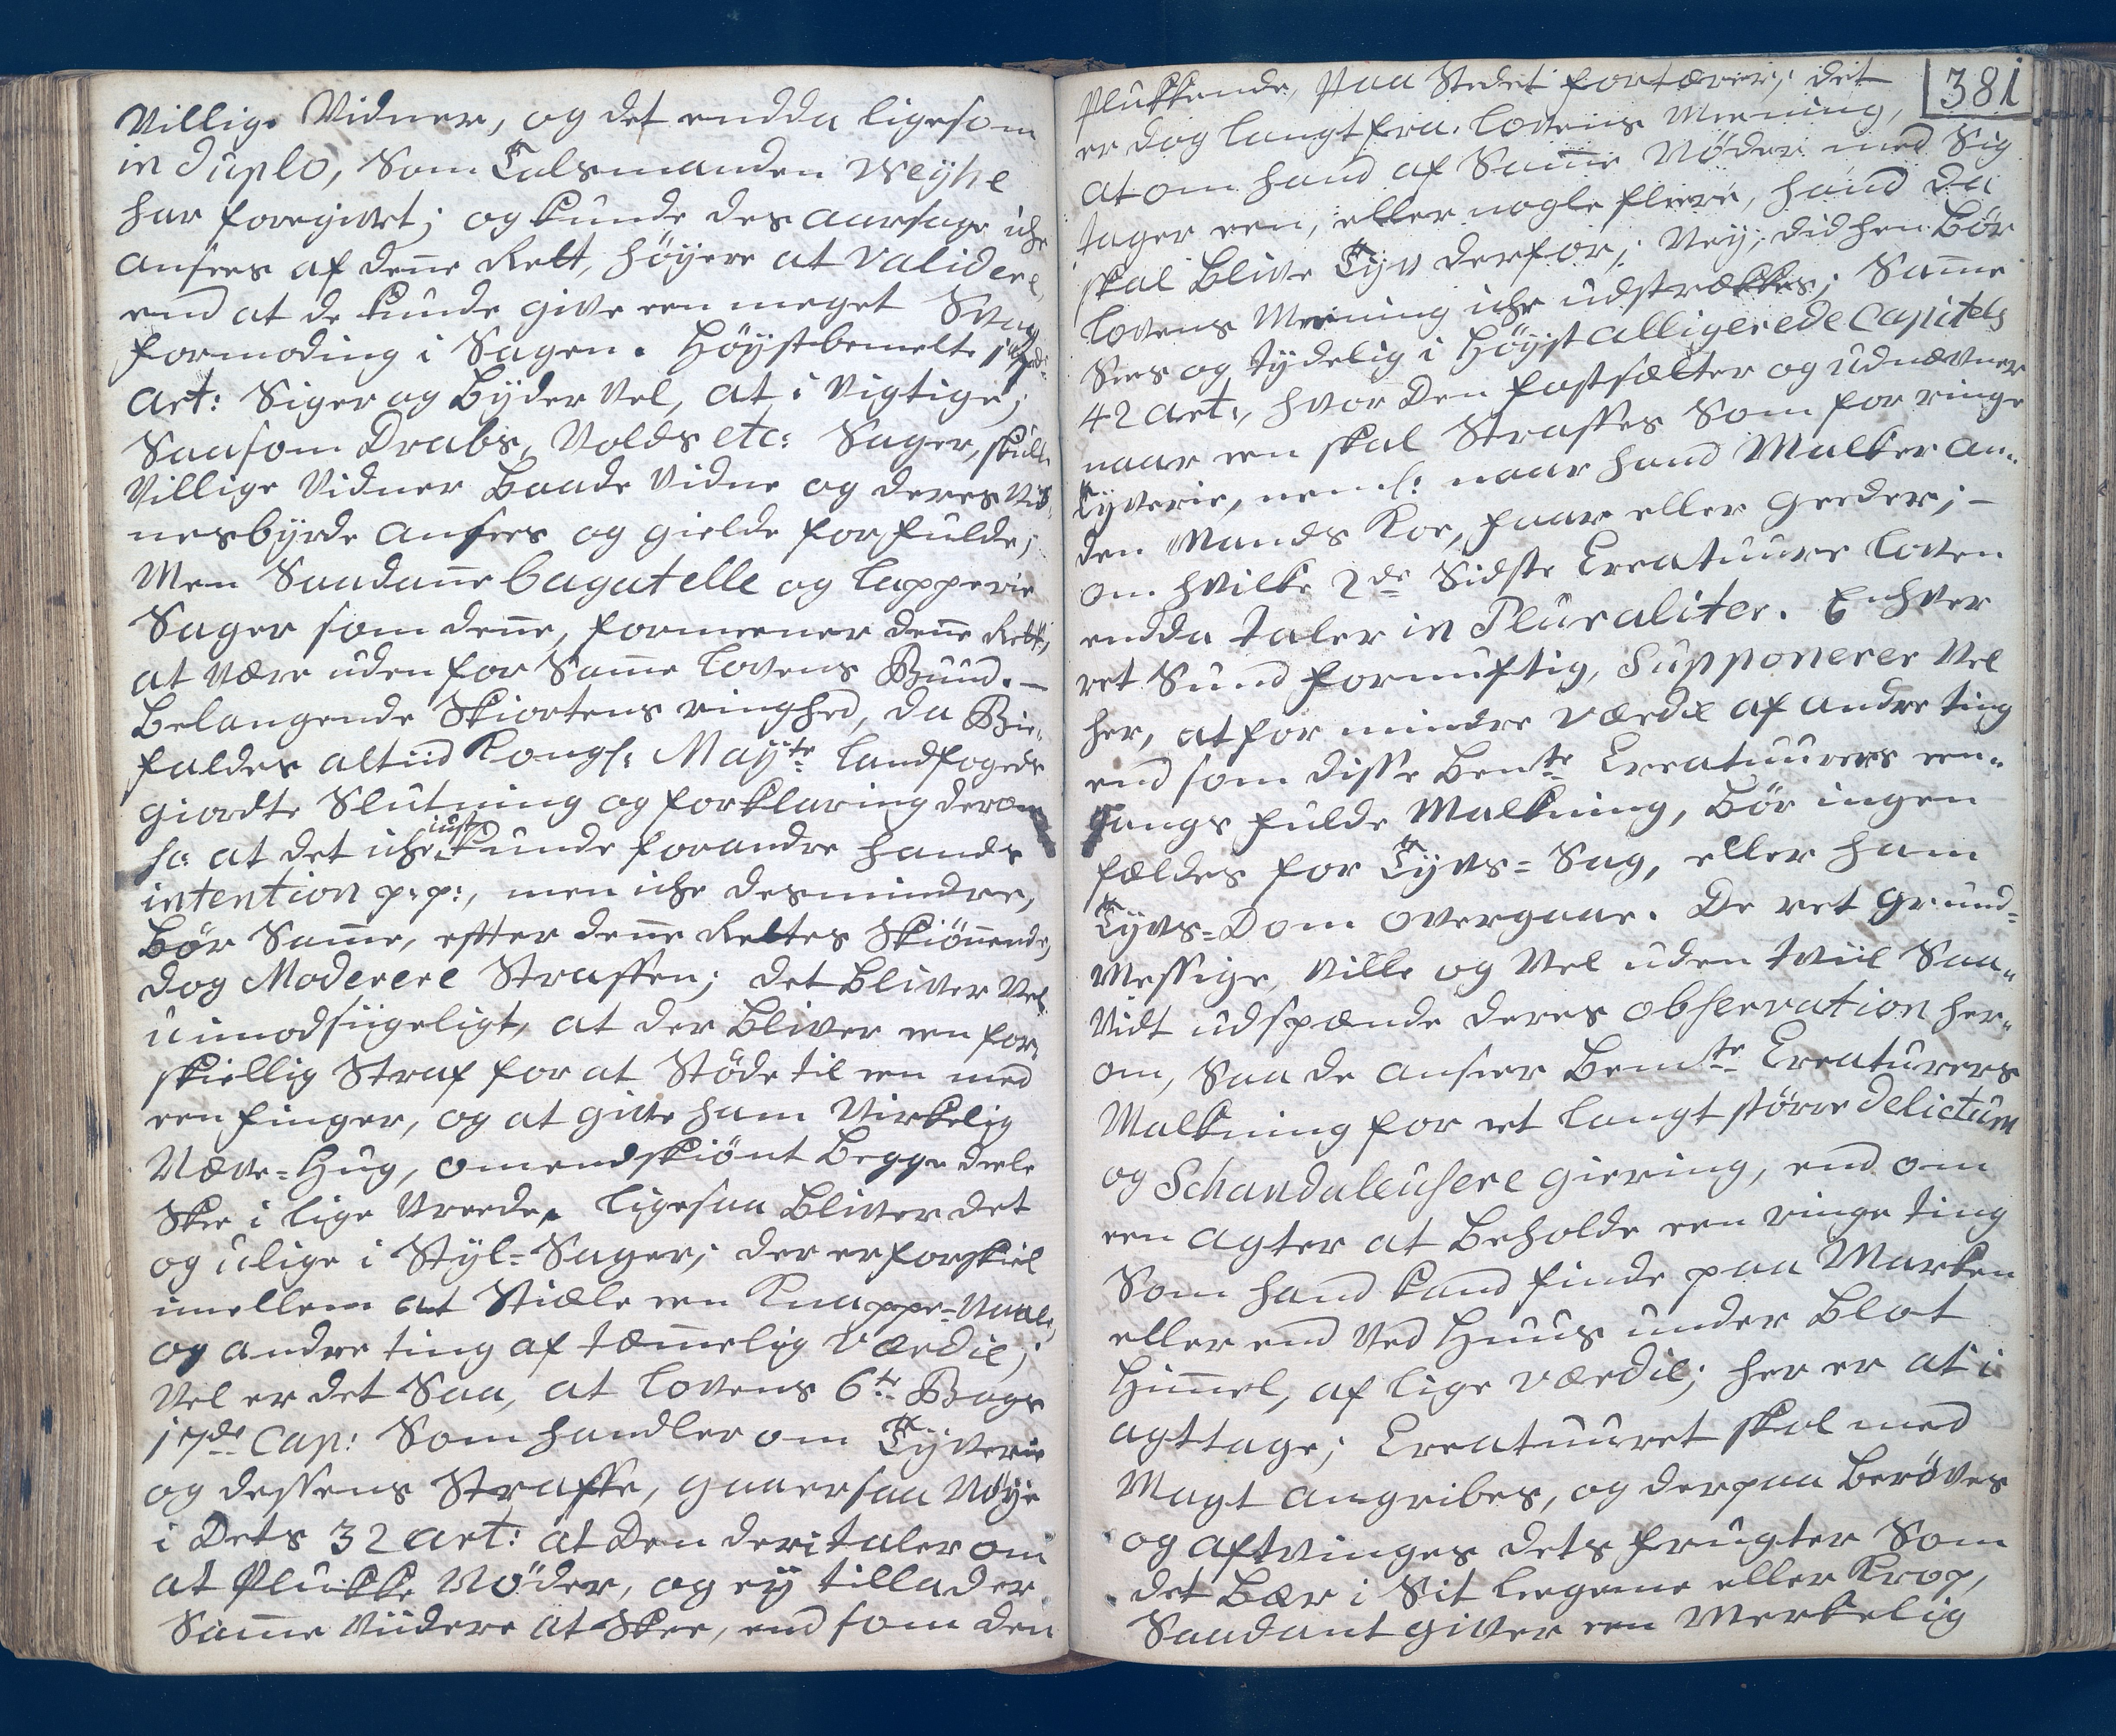 Villige Vidner, og det endda ligesom
in duplo, Som Talsmanden Weyhe
har foregivet; og kunde des aarsage iche
ansees af denne Rett, höyere at validere,
end at de kunde give een meget Svag
formoding i Sagen. Höystbemelte
Art: Siger og Byder vel, at i vigtige;
Saasom Drabs, Volds etc: Sager, skulle
Villige Vidner Baade Vidne og deres Vid-
nesbyrde ansees og gielde for fulde;
Men Saadanne bagatelle og lapperie
Sager som denne, formeener denne Rett,
at være uden for Samme Lovens Bund. –
Belangende Skiortens ringhed, da Bie-
faldes altiid Kongl: Mayts Landfogeds
giordte Slutning og forklaring derom
sc: at det iche just kunde forandre hands
intention p:p:, men iche desmindre,
Bör Samme, effter denne Rettes Skiönnende,
dog Moderere Straffen; det Bliver vel
uimodsiigeligt, at der Bliver een for-
skiellig Straf for at Stöde til een med
een finger, og at give ham Virkelig
Næve-Hug, omendskiönt Begge deele
Skee i lige Vreede. ligesaa Bliver det
og ulige i Styl-Sager; der er forskiel
imellem at Stiæle een Knappe-Naal,
og andre ting af temmelig Værdie;
Vel er det Saa, at Lovens 6te Bogs
17de Cap: Som handler om Tyverie
og dessens Straffe, gaaer saa Nöye
i Dets 32 Art: at Den deri taler om
at Plukke Nöder, og ey tillader
Samme Viidere at Skee, end som den
381
Plukkende, paa Stedet fortærer; det
er dog langt fra Lovens Meening,
at om hand af Samme Nöder med Sig
tager een, eller nogle fleere, hand da
skal Blive Tyv derfor; Ney; did hen Bör
Lovens Meening iche udstrækkes; Samme
Sees og tydelig i Höyst alligerede Capitels
42 Art:, hvor Den fastsætter og udnævner
naar een skal Straffes Som for ringe
Tyverie, neml: naar hand Malker an-
den Mands Koe, faar eller Geeder; –
om hvilke 2de Sidste Creatuure Loven
endda taler in Pluraliter. Enhver
ret Sund fornuftig, Supponerer Vel
her, at for mindre Værdie af andre ting
end som disse Bemte Creatuurers een-
gangs fulde Malkning, Bör ingen
fældes for Tyvs-Sag, eller ham
Tyvs-Dom overgaae. De ret Grund-
Messige, ville og Vel uden tviil Saa-
Vidt udspænde deres observation her-
om, Saa de anseer Bemte Creaturers
Malkning for et langt större Delictum
og Schandaleusere giering, end om
een agter at Beholde een ringe ting
Som hand kand finde paa Marken
eller end Ved Huus under Blot
Himmel, af lige Værdie; her er at i
agttage; Creatuuret skal med
Magt angribes, og derpaa Berøves
og aftvinges dets frugter Som
det Bær i Sit Legeme eller Krop,
Saadant giver een Merkelig